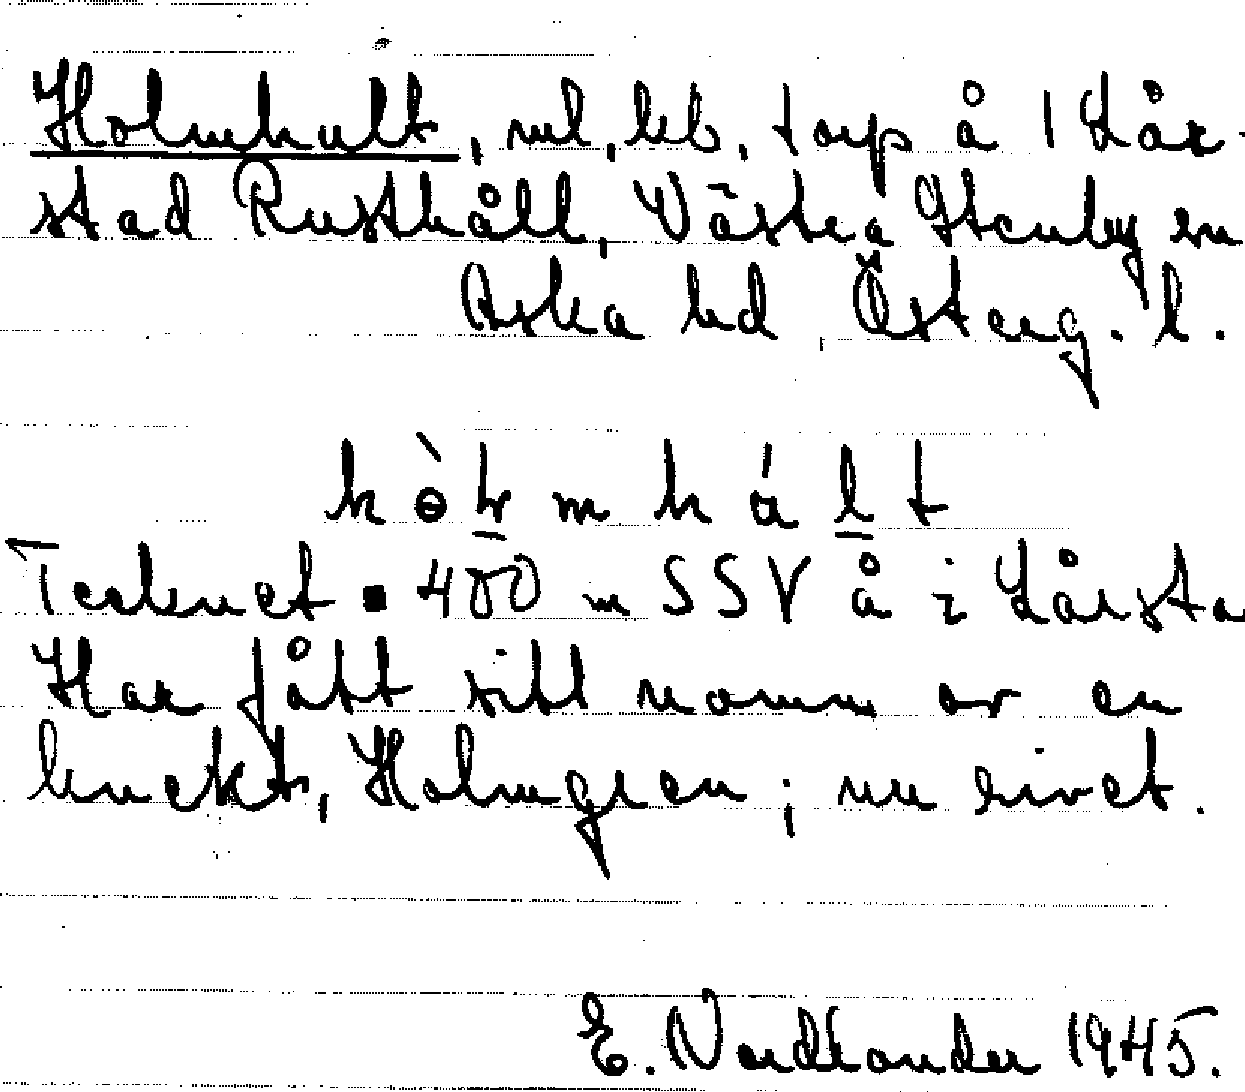 Holmhult, ml, bb, torp å 1 Lår-
stad Rusthåll, Västra Stenby sn
Aska hd Österg. l.
Tecknet ▪ 400 m SSV å i Lårsta
Har fått sitt namn av en
knekt, Holmgren; nu rivet.
E. Nordlander 1945.